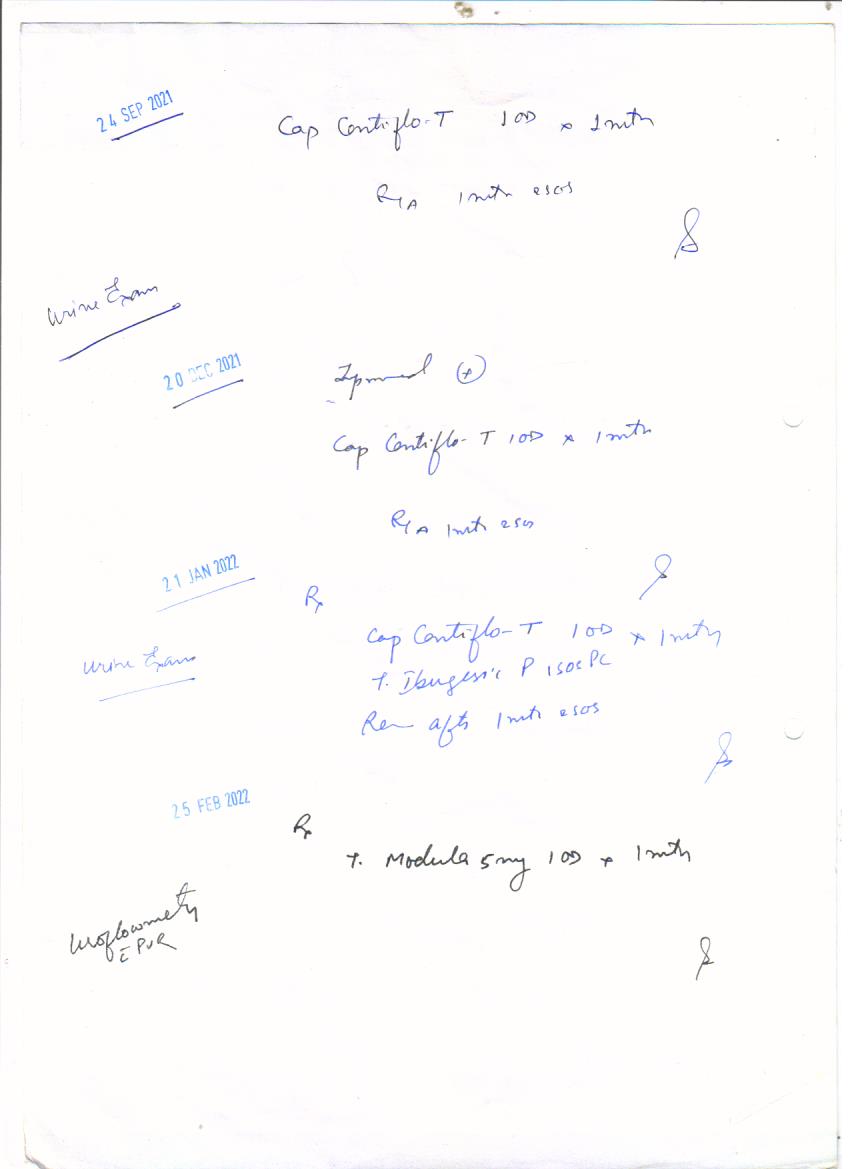 24 SEP 2021
Cap Contiflo-T 1 OD x 1 mth
R/A 1 mth esos
Urine Exam
20 DEC 2021
Improved (+)
Cap Contiflo-T 1 OD x 1 mth
R/A 1 mth esos
21 JAN 2022
Rx
Cap Contiflo-T 1 OD x 1 mth
Urine Exam
T. Ibugesic P 1 SOS PC
Rev after 1 mth esos
25 FEB 2022
Rx
T. Modula 5 mg 1 OD x 1 mth
Uroflowmetry
c̄ PVR